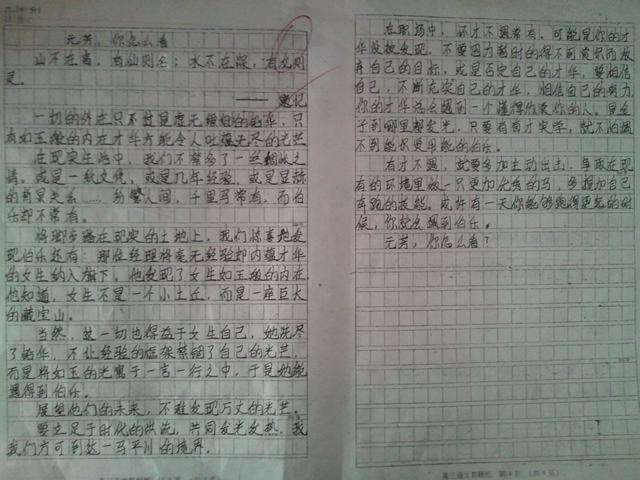 元芳，你怎么看
山不在高，有仙则名；水不在深，有龙则
灵。
一切的外在只不过是虚无缥缈的铅华，只
有如玉般的内在才华方能令人吐蕴无尽的光芒
在现实生活中，我们不常多了一些粗俗之
情。或是一纸文凭，或是几年经验，或是显赫
的背景关系……纷繁人间，千里马常有，而伯
乐却不常有。
将脚步踏在现实的土地上，我们惊喜地发
现伯乐还有：那位经理将毫无经验却内蕴才华
的女生纳入旗下。他发现了女生如玉般的内在，
他知道，女生不是一个小土丘，而是一座巨大
的藏宝山。
当然，这一切也得益于女生自己，她洗尽
了铅华，不让经验的框架禁锢了自己的光芒，
而是将如玉的光寓于一言一行之中，于是她能
遇得到伯乐。
展望他们的未来，不难发现万丈的光芒。
要立足于时代的洪流，共同发光发热，我
我们方可到达一马平川的境界。
在职场中，怀才不遇常有，可能是你的才
华没被发现，不要因为暂时的得不到赏识而放
弃自己的目标，或是否定自己的才华，要相信
自己，不断充实自己的才华，相信自己的努力
你的才华总会遇到一个懂得欣赏你的人。是金
子到哪里都发光，只要有真才实学，就不怕遇
不到能识使用能的伯乐。
有才不遇，就要多加主动出击，争取在现
有的环境里做一只更加优秀的马，多提加自己
奔跑的技能。或许有一天你能够跑得更远的时
候，你就会遇到伯乐。
元芳，你怎么看？